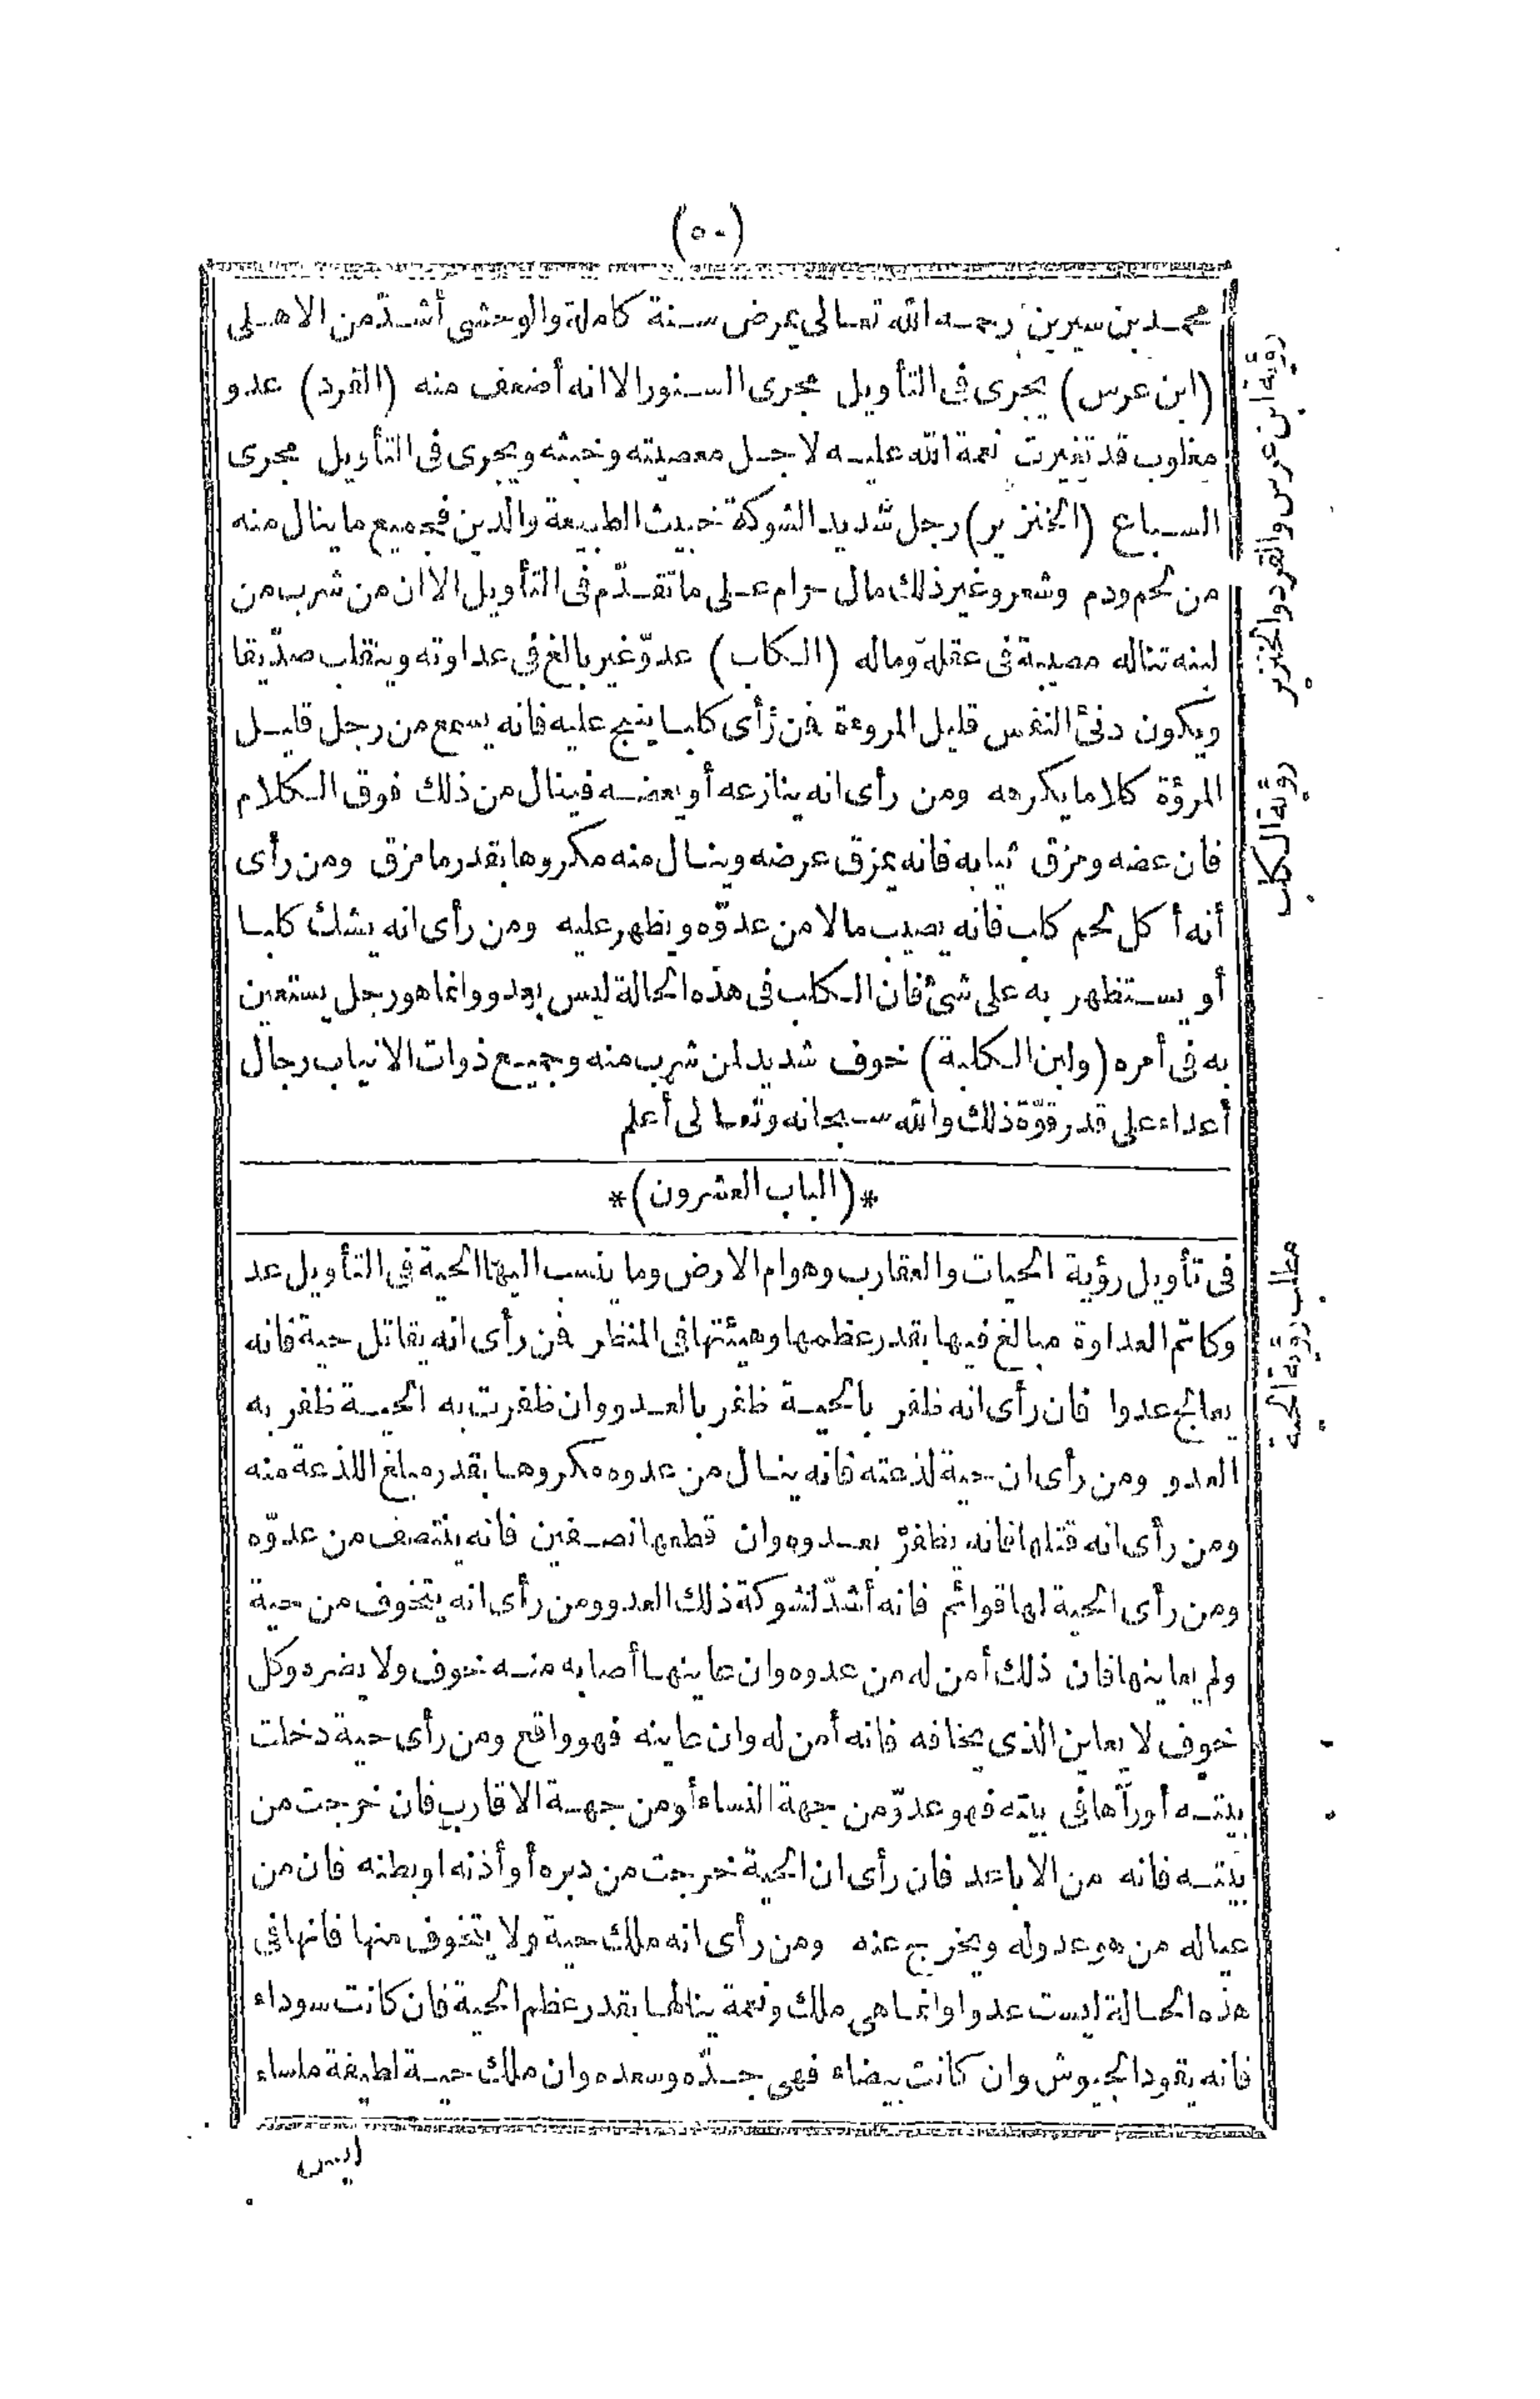 (٥٠)
محمد بن سيرين رحمه الله تعالى يمرض سنة كاملة والوحشى أشدّ من الاهلى
(ابن عرس) يجرى فى التأويل مجرى السنور الا انه أضعف منه (القرد) عدو
مغلوب قد تغيرت نعمة الله عليه لاجل معصيته وخبثه ويجرى فى التأويل مجرى
السباع (الخنزير) رجل شديد الشوكة خبيث الطبيعة والدين فجميع ما ينال منه
من لحم ودم وشعر وغير ذلك مال حرام على ما تقدّم فى التأويل الا ان من شرب من
لبنه تناله مصيبة فى عقله وماله (الكلب) عدوّ غير بالغ فى عداوته وينقلب صديقا
ويكون دنئ النفس قليل المروءة فمن رأى كلبا ينبح عليه فانه يسمع من رجل قليل
المرؤة كلاما يكرهه ومن رأى انه ينازعه أو بعضه فينال من ذلك فوق الكلام
فان عضه ومزق ثيابه فانه يمزق عرضه وينال منه مكروها بقدر ما مزق ومن رأى
أنه أكل لحم كلب فانه يصيب مالا من عدوّه ويظهر عليه ومن رأى انه يشلك كلبا
أو يستظهر به على شئ فان الكلب فى هذه الحالة ليس بعدو وانما هو رجل يستعين
به فى أمره (ولبن الكلبة) خوف شديد لمن شرب منه وجميع ذوات الانياب رجال
أعداء على قدر قوّة ذلك والله سبحانه وتعالى أعلم
*(الباب العشرون)*
فى تأويل رؤية الحيات والعقارب وهوام الارض وما ينسب اليها الحية فى التأويل عد
وكاتم العداوة مبالغ فيها بقدر عظمها وهيئتها فى المنظر فمن رأى انه يقاتل حية فانه
يعالج عدوا فان رأى انه ظفر بالحية ظفر بالعدو وان ظفرت به الحية ظفر به
العدو ومن رأى ان حية لذعته فانه ينال من عدوه مكروها بقدر مبلغ اللذعة منه
ومن رأى انه قتلها فانه يظفر بعدوه وان قطعها نصفين فانه ينتصف من عدوّه
ومن رأى الحية لها قوائم فانه أشدّ لشوكة ذلك العدو ومن رأى انه يتخوف من حية
ولم يعاينها فان ذلك أمن له من عدوه وان عاينها أصابه منه خوف ولا يضره وكل
خوف لا يعاين الذى يخافه فانه أمن له وان عاينه فهو واقع ومن رأى حية دخلت
بيته أو رآها فى بيته فهو عدوّ من جهة النساء أو من جهة الاقارب فان خرجت من
بيته فانه من الاباعد فان رأى ان الحية خرجت من دبره أو أذنه او بطنه فان من
عياله من هو عدو له ويخرج عنه ومن رأى انه ملك حية ولا يتخوف منها فانها فى
هذه الحالة ليست عدوا وانما هى ملك ونعمة ينالها بقدر عظم الحية فان كانت سوداء
فانه يقود الجيوش وان كانت بيضاء فهى جدّه وسعده وان ملك حية لطيفة ملساء
ليس
رؤية ابن عرس والقرد والخنزير
رؤية الكلب
مطلب رؤية الحية